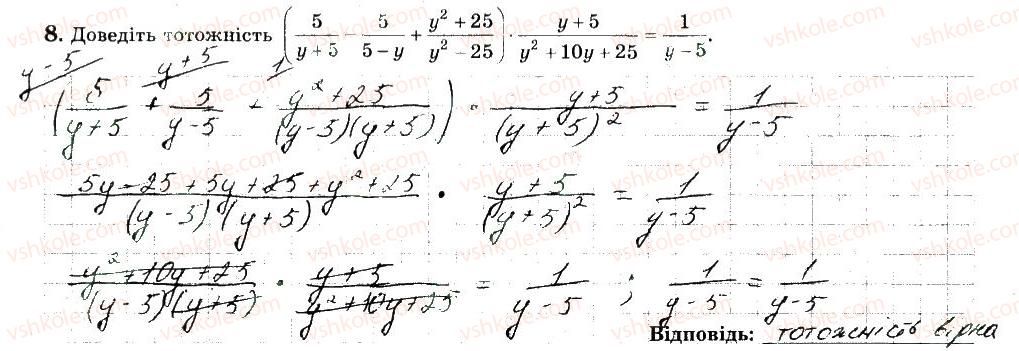 8. Доведіть тотожність (5/(y+5) − 5/(5−y) + (y²+25)/(y²−25)) · (y+5)/(y²+10y+25) = 1/(y−5).
y−5 y+5 1
(5/(y+5) + 5/(y−5) + (y²+25)/((y−5)(y+5))) · (y+5)/(y+5)² = 1/(y−5)
(5y−25+5y+25+y²+25)/((y−5)(y+5)) · (y+5)/(y+5)² = 1/(y−5)
(y²+10y+25)/((y−5)(y+5)) · (y+5)/(y²+10y+25) = 1/(y−5) ; 1/(y−5) = 1/(y−5)
Відповідь: тотожність вірна